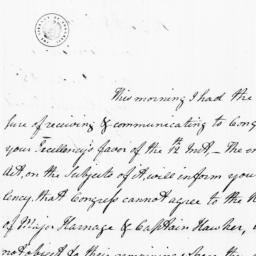 This morning I had the
sure of receiving & communicating to Cong
your Excellency's favor of the 7th Inst. – The en
Act, on the Subjects of it, will inform you
lency, that Congress cannot agree to the R
of Major Harnage & Captain Hawker,
not object to their remaining where the